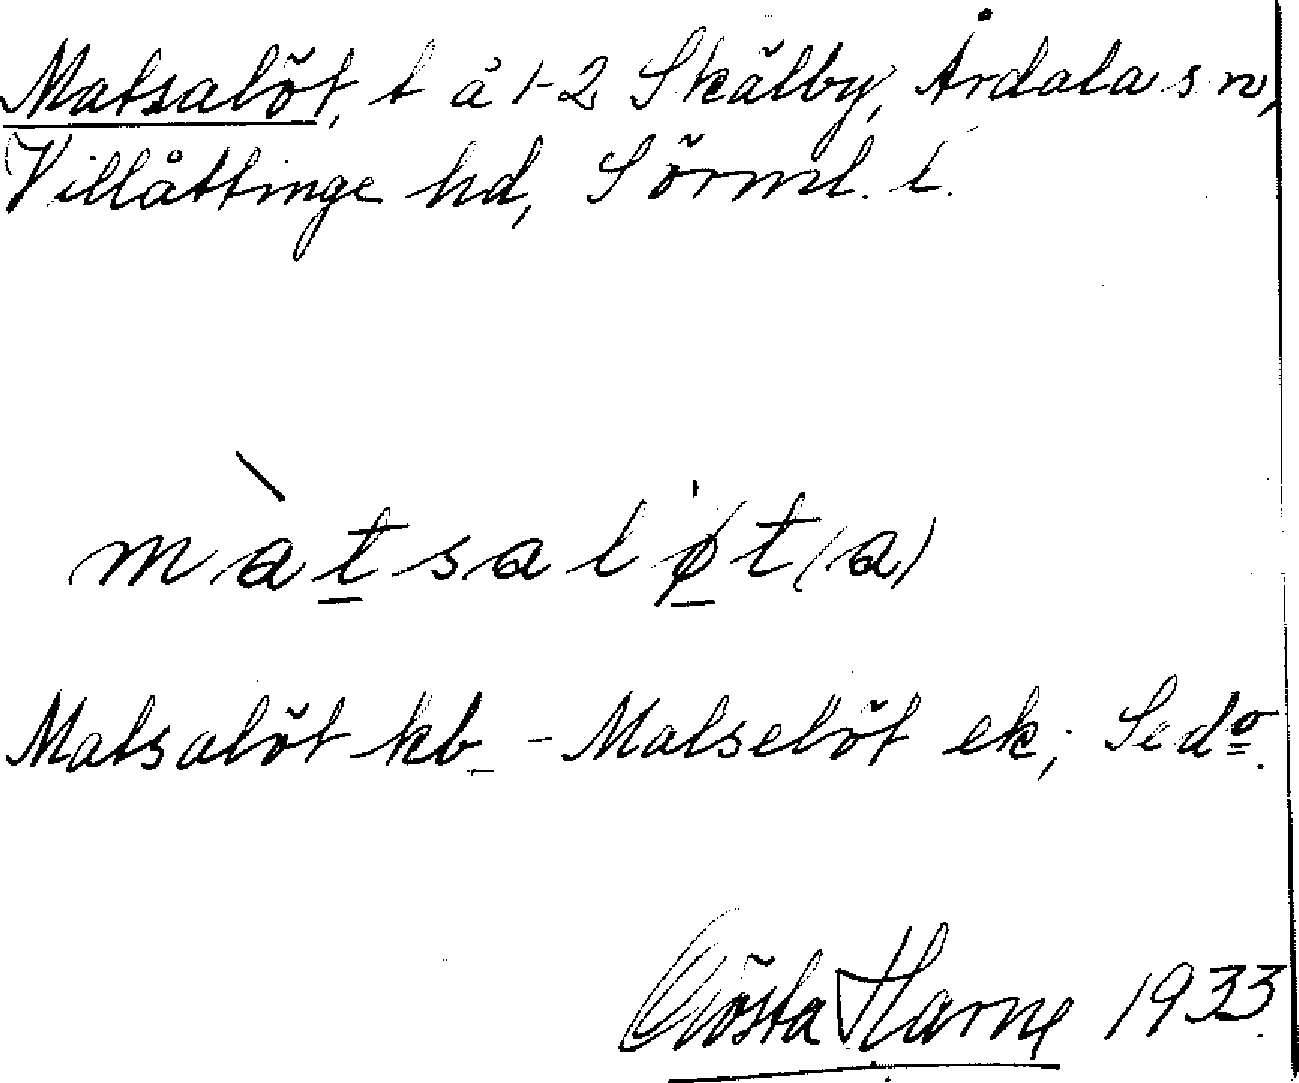 Matsalöt, t å 1-2 Skälby, Årdala sn,
Villåttinge hd, Sörml. l.
màtsaløt(a)
Matsalöt kb - Matselöt ek; Se do.
Gösta Harne 1933.